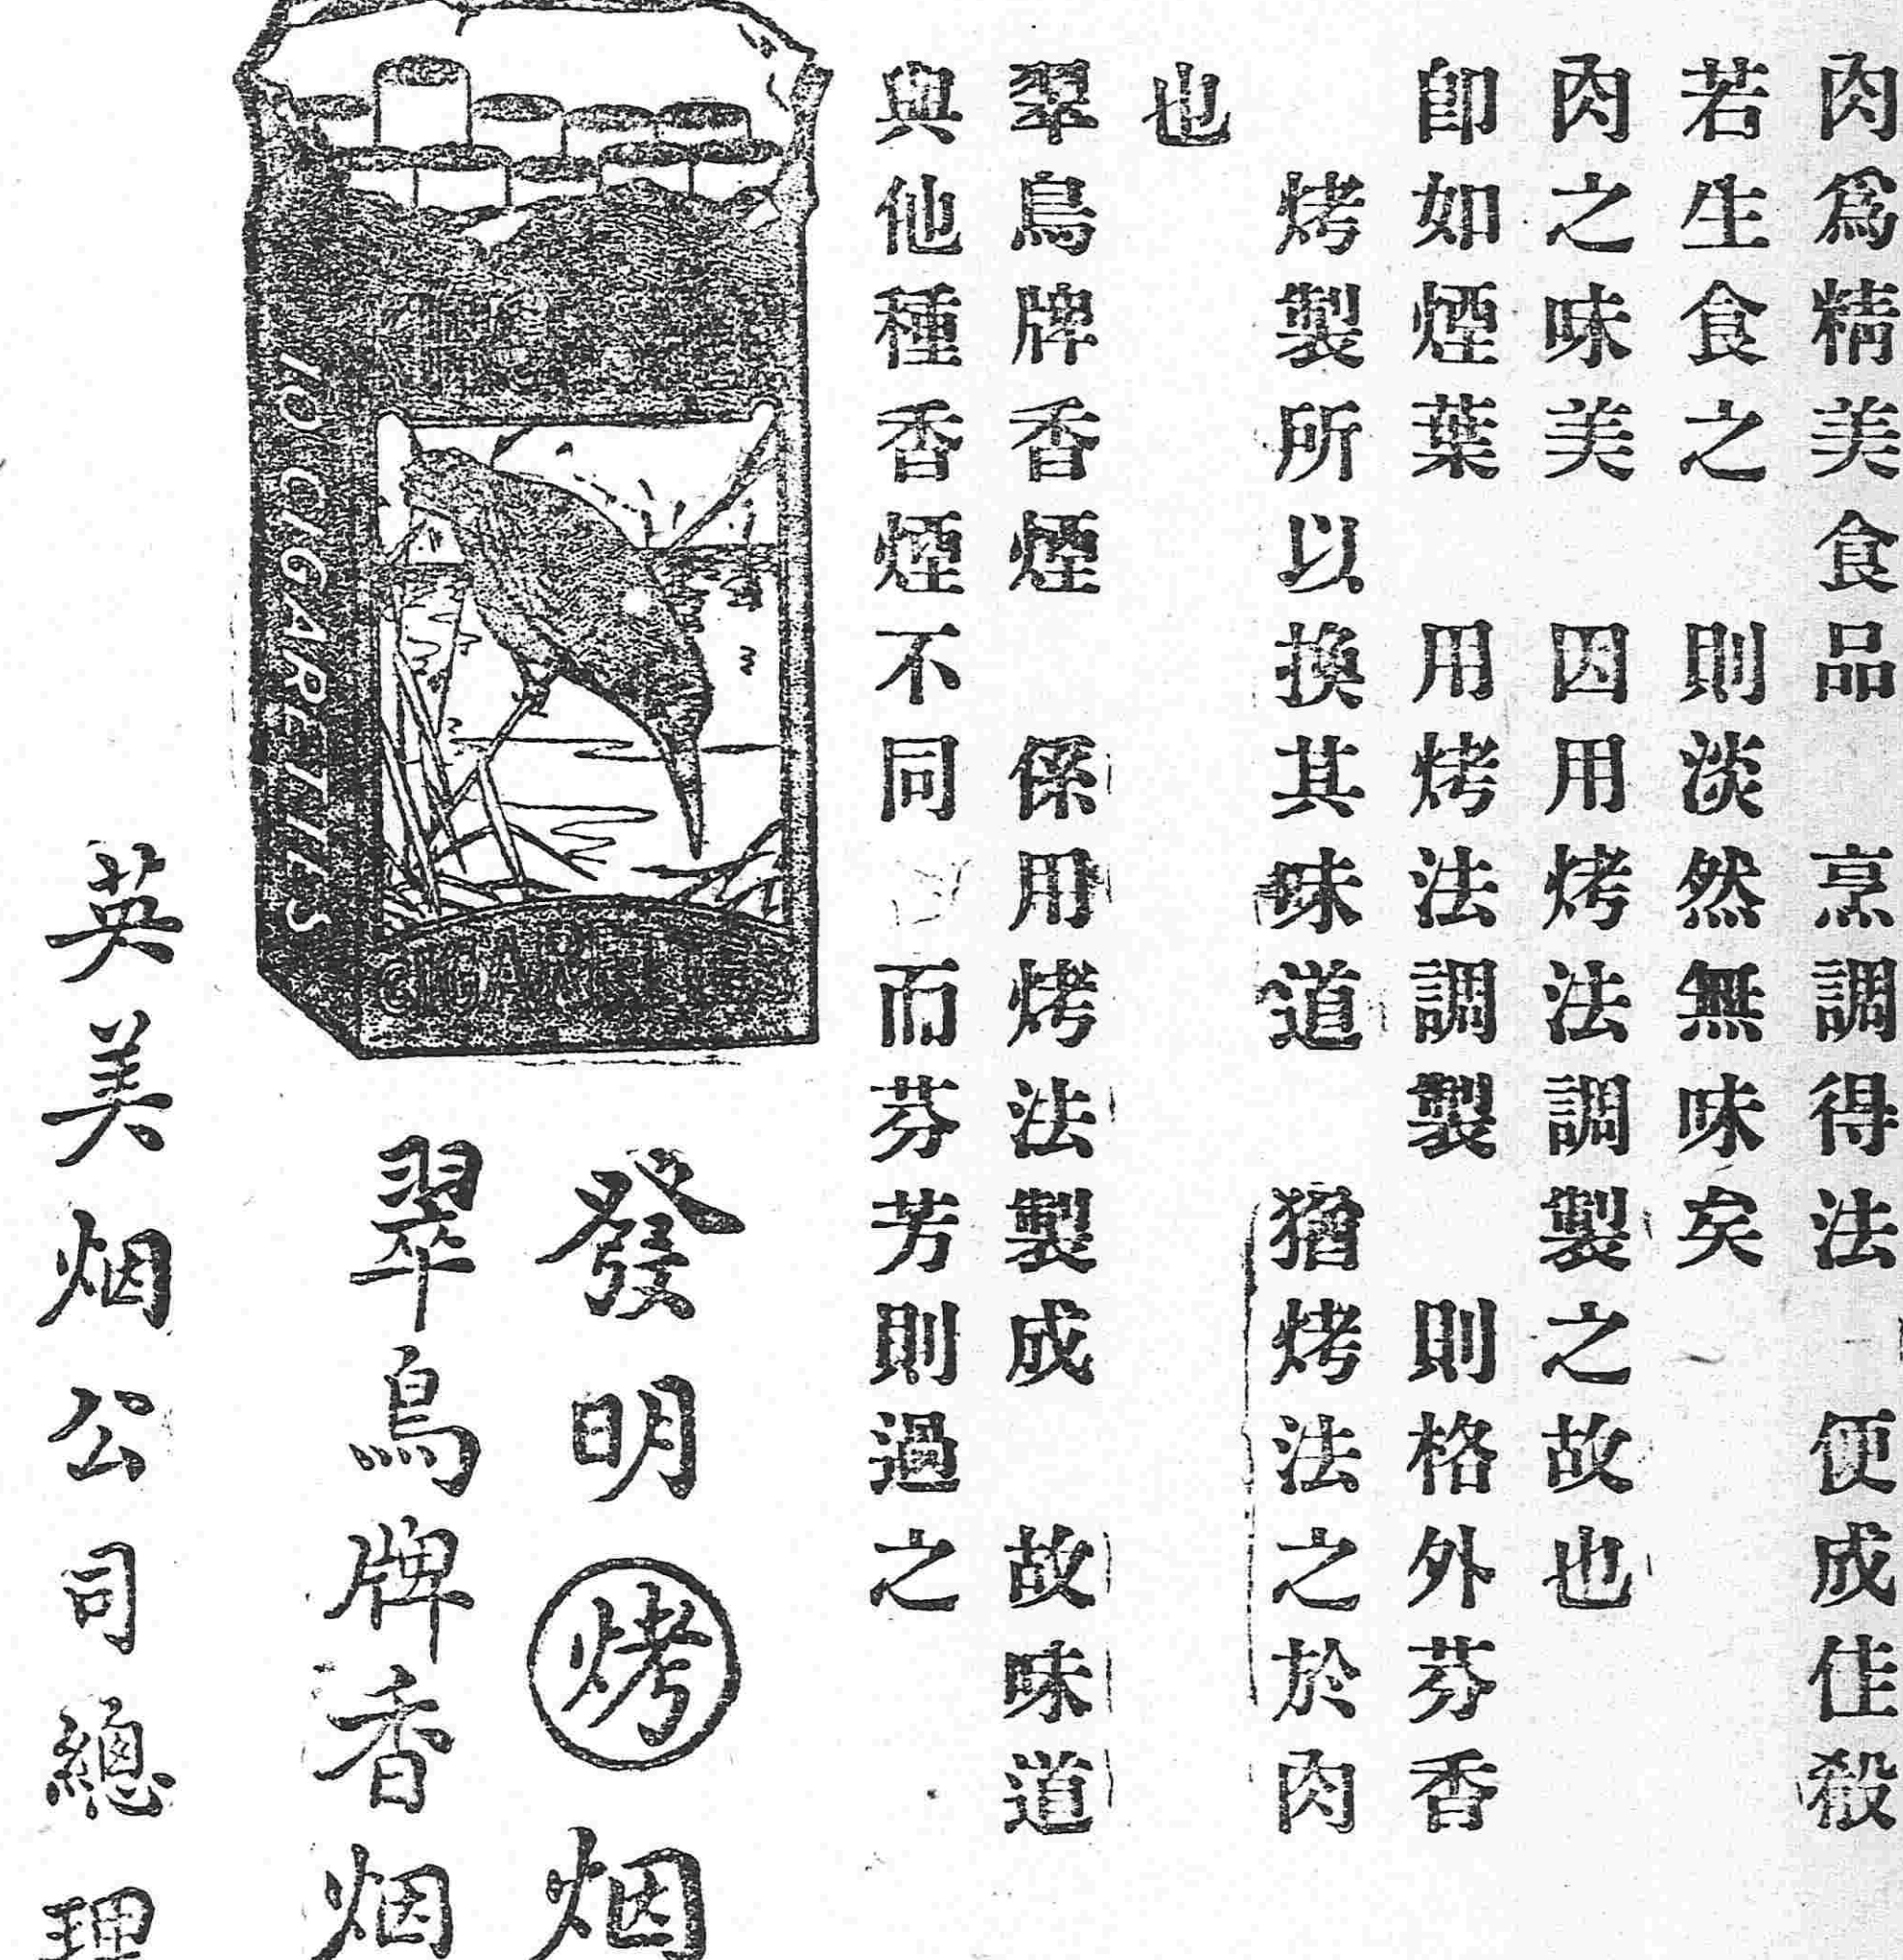 肉爲精美食品　烹調得法　便成佳殽
若生食之　則淡然無味矣
肉之味美　因用烤法調製之故也
卽如煙葉　用烤法調製　則格外芬香
烤製所以換其味道　猶烤法之於肉
也
翠鳥牌香煙　係用烤法製成　故味道
與他種香煙不同　而芬芳則過之
發明烤烟
翠鳥牌香烟
10 CIGARETTES
CIGARETTES
英美烟公司總理